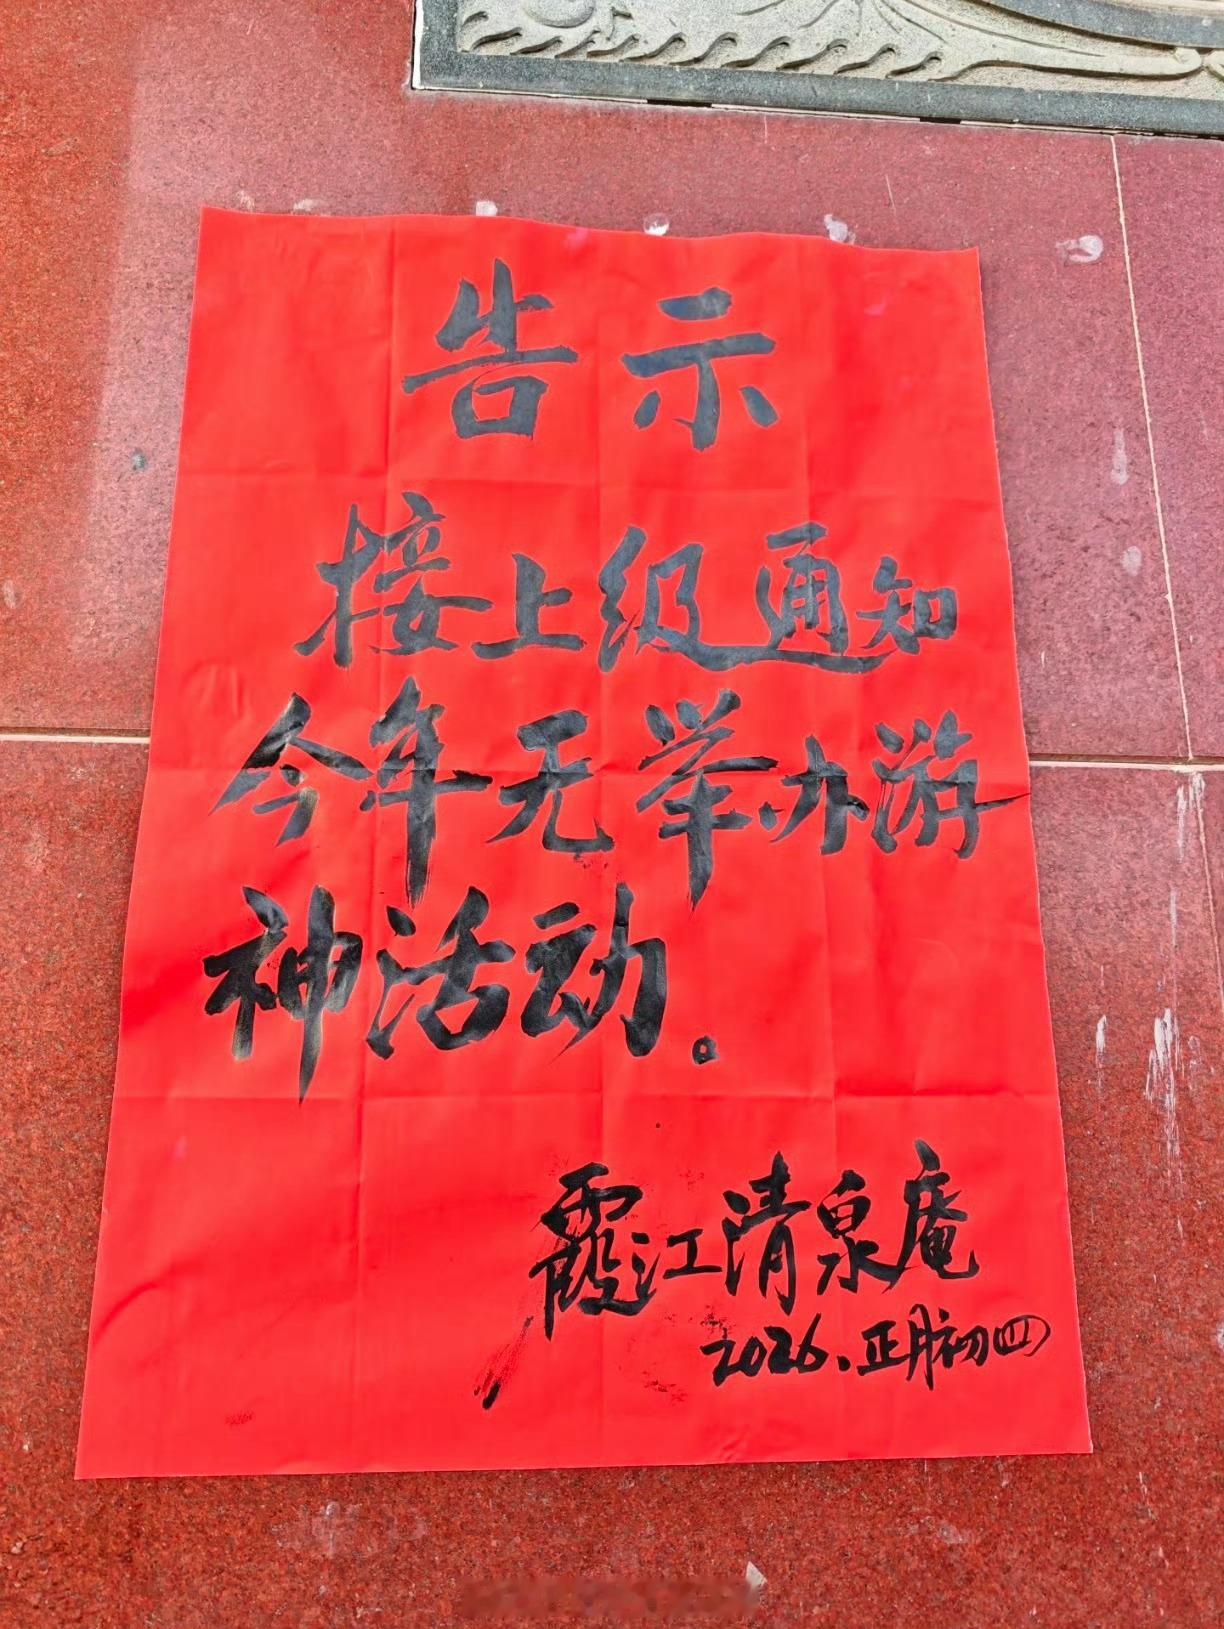 告示
接上级通知
今年无举办游
神活动。
霞江清泉庵
2026.正月初四